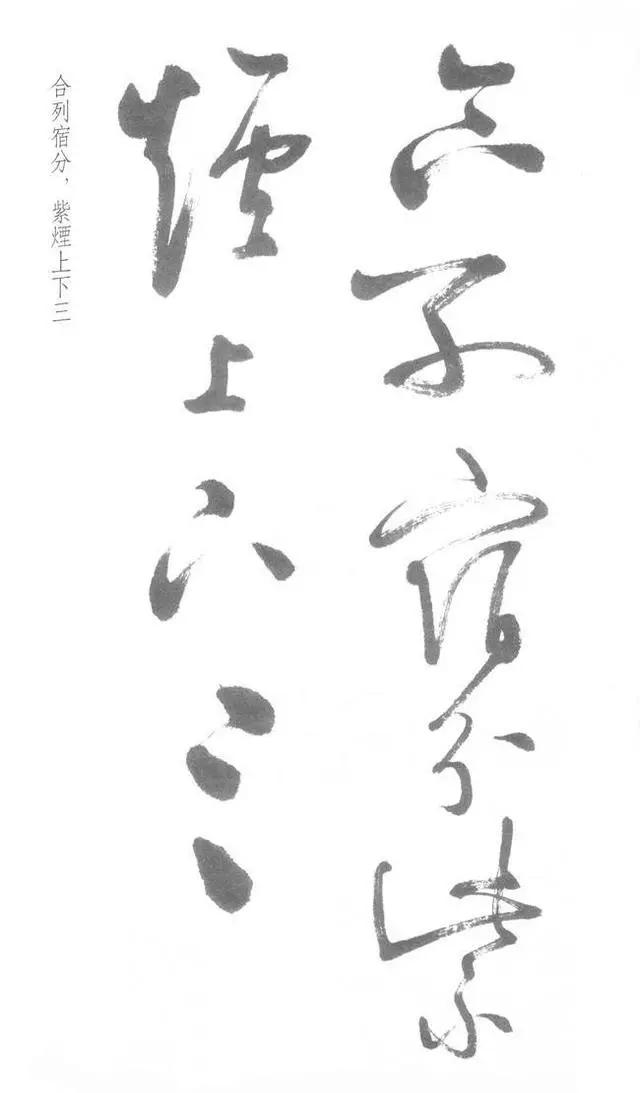 合列宿分紫
煙上下三
合列宿分，紫煙上下三